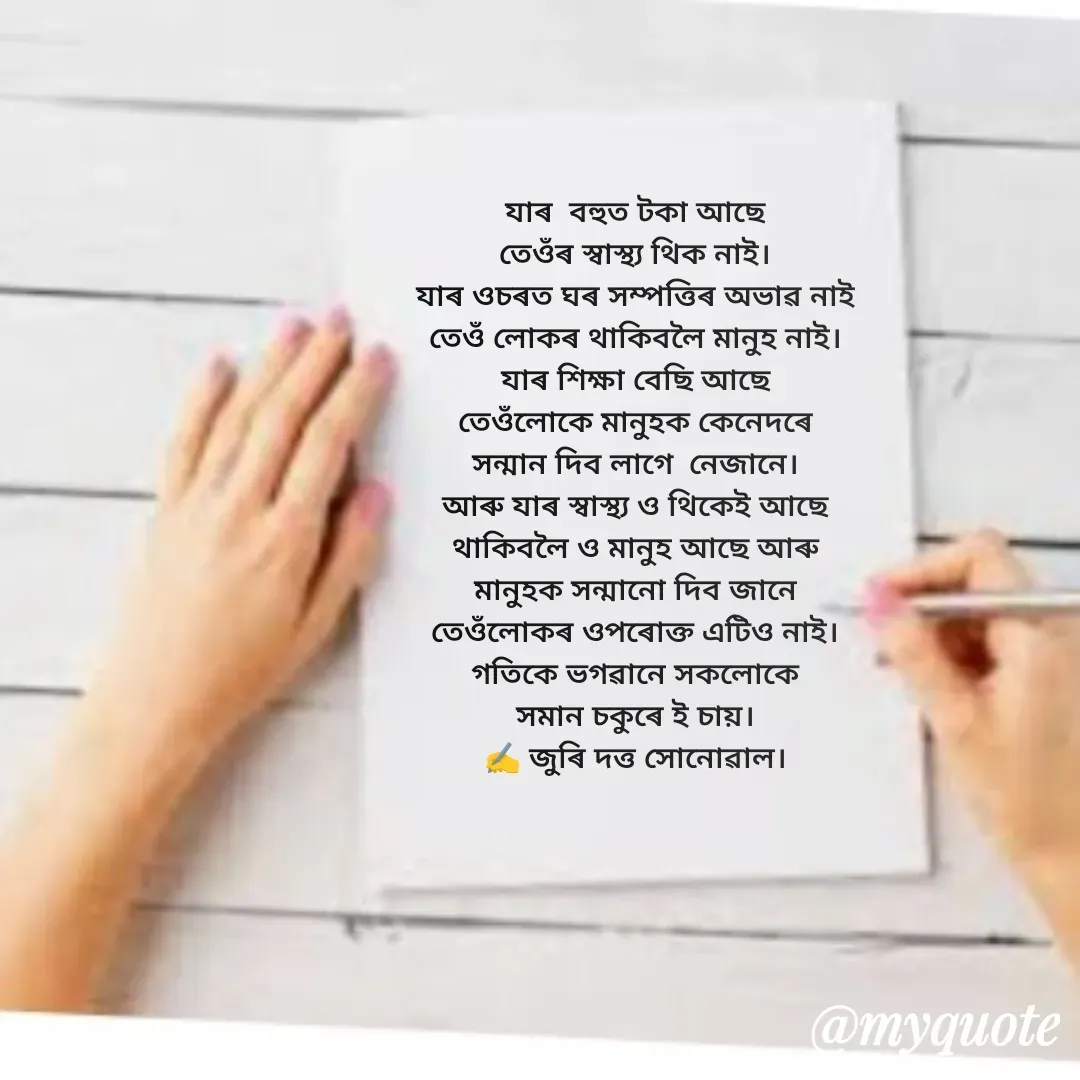 যাৰ  বহুত টকা আছে
তেওঁৰ স্বাস্থ্য থিক নাই।
যাৰ ওচৰত ঘৰ সম্পত্তিৰ অভাৱ নাই
তেওঁ লোকৰ থাকিবলৈ মানুহ নাই।
যাৰ শিক্ষা বেছি আছে
তেওঁলোকে মানুহক কেনেদৰে
সন্মান দিব লাগে  নেজানে।
আৰু যাৰ স্বাস্থ্য ও থিকেই আছে
থাকিবলৈ ও মানুহ আছে আৰু
মানুহক সন্মানো দিব জানে
তেওঁলোকৰ ওপৰোক্ত এটিও নাই।
গতিকে ভগৱানে সকলোকে
সমান চকুৰে ই চায়।
✍️ জুৰি দত্ত সোনোৱাল।
@myquote